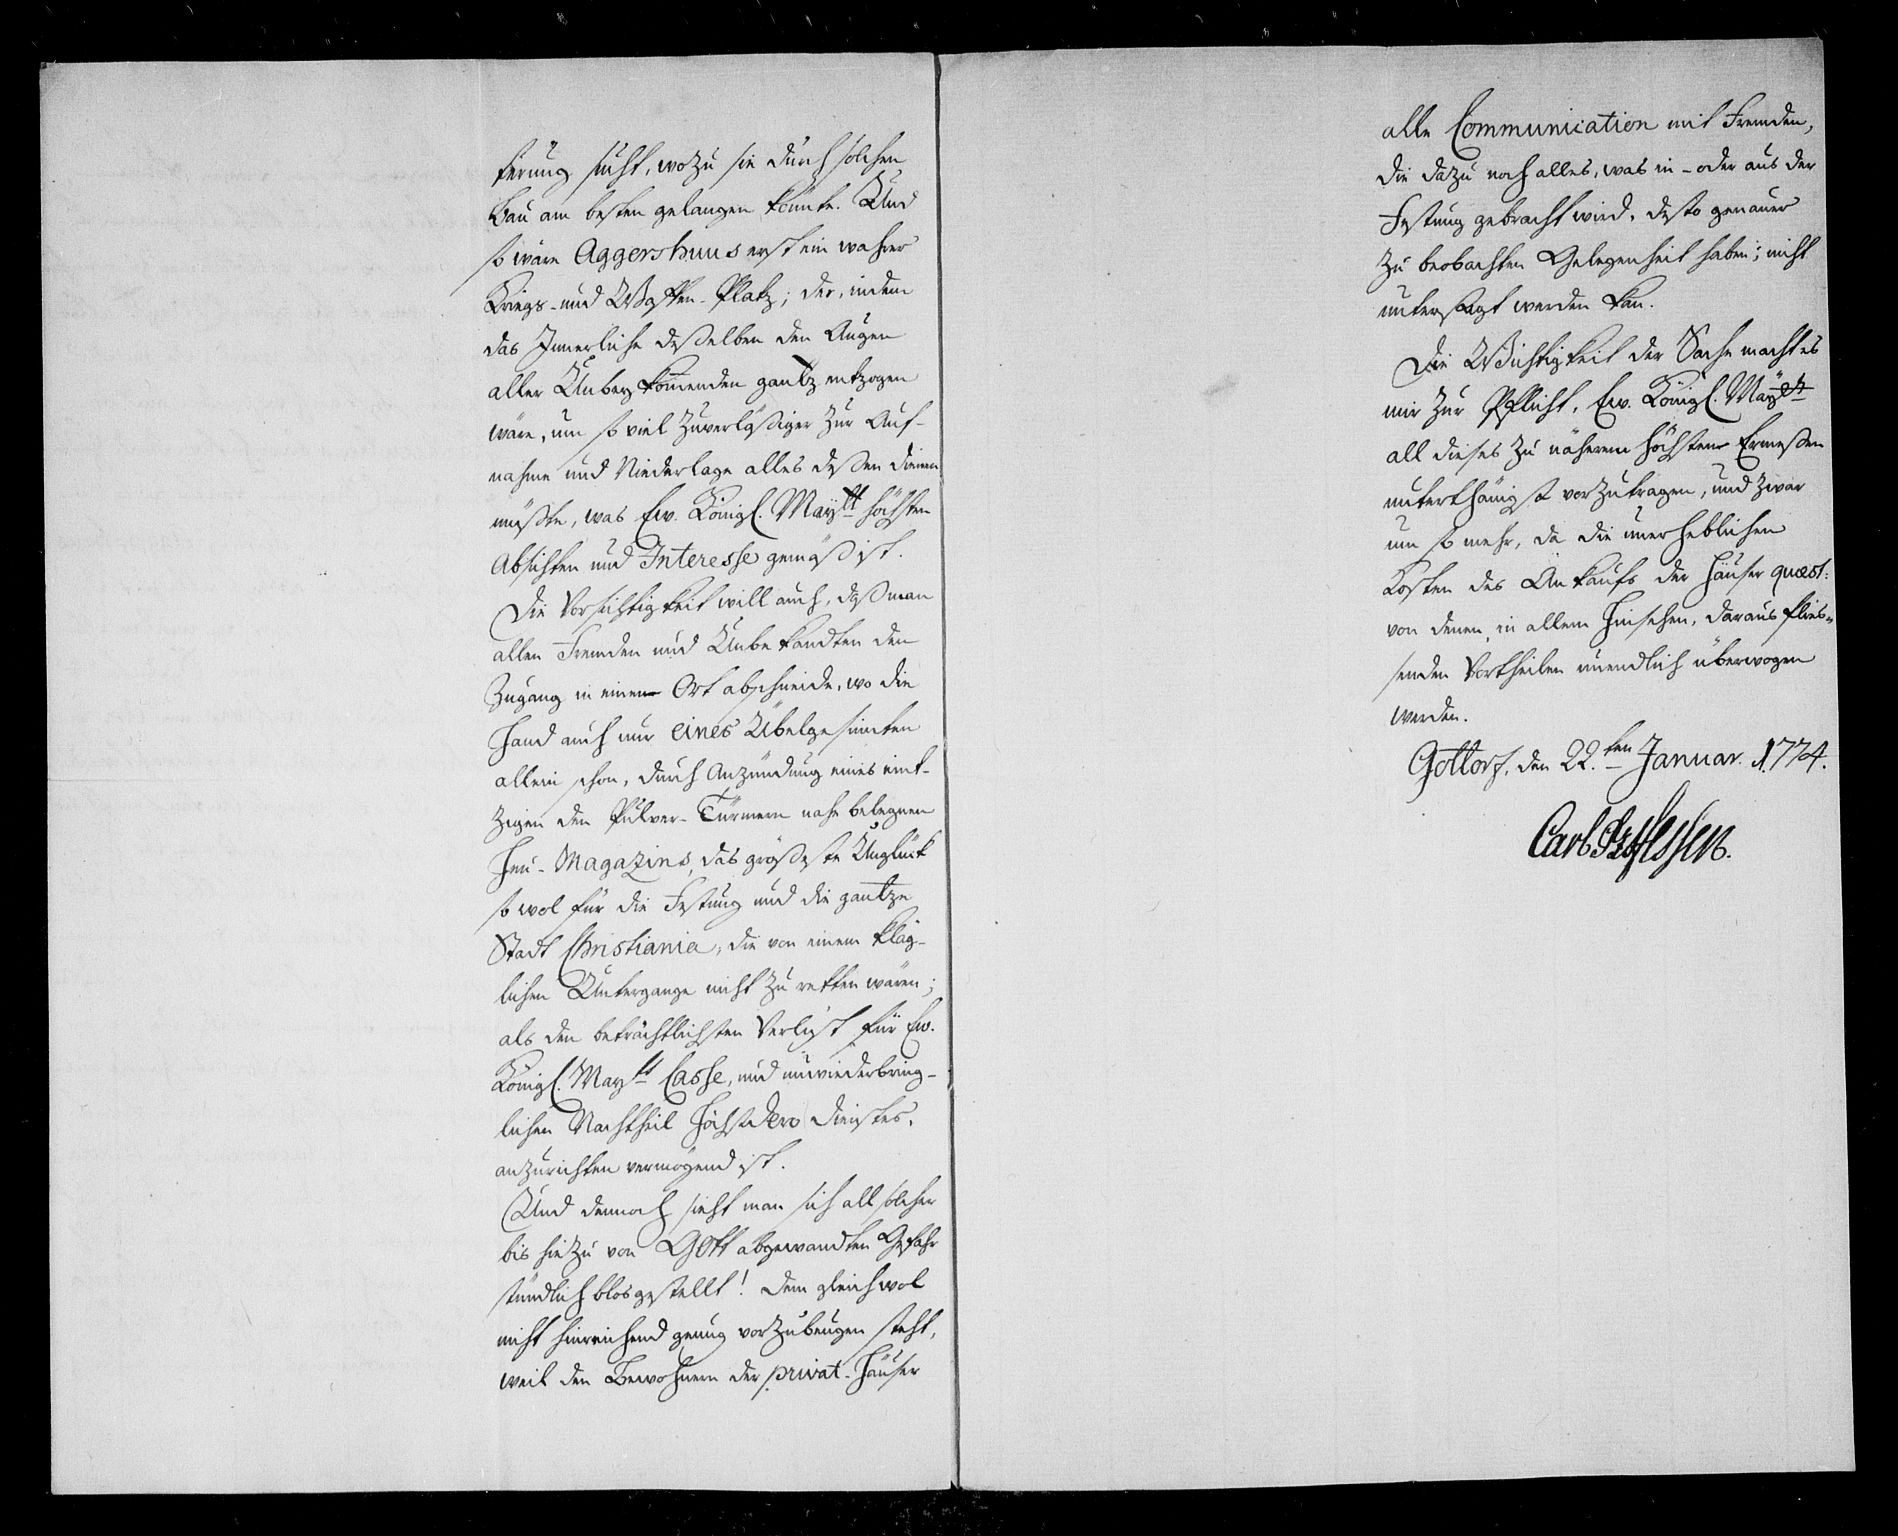 terung sucht, wozu sie durch solchen
Bau am besten gelangen könnte. Und
so wäre Aggershuus erst ein wahrer
Kriegs- und Waffen-Platz; der, indem
das Innerliche deßelben den Augen
aller Unbeykom̄enden gantz entzogen
wäre, um so viel zuverläßiger zur Auf-
nahme und Niederlage alles deßen dienen
müßte, was Ew. Königl. Maytt höchsten
Absichten und Interesse gemäß ist.
Die Vorsichtigkeit will auch, daß man
allen Fremden und Unbekandten den
Zugang in einem Ort abschneide, wo die
Hand auch nur eines Übelgesinnten
allein schon, durch Anzündung eines eint-
zigen den Pulver-Türmern nahe belegnen
Heu-Magazins, das größeste Unglück
so wol für die Festung und die gantze
Stadt Christiania, die von einem kläg-
lichen Untergange nicht zu retten wären;
als den beträchtlichsten Verlust für Ew.
Königl. Maytt Casse, und unwiederbring-
lichen Nachtheil Höchstdero Dienstes,
anzurichten vermögend ist.
Und dennoch sieht man sich all solcher
bis hiezu von Gott abgewandten Gefahr
stündlich blosgestellt! Dem gleichwol
nicht hinreichend genug vorzubeugen steht,
weil den Bewohnern der privat-Häuser
alle Communication mit Fremden,
die dazu noch alles, was in- oder aus der
Festung gebracht wird, desto genauer
zu beobachten Gelegenheit haben; nicht
untersagt werden kan.
Die Wichtigkeit der Sache macht es
mir zur Pflicht, Ew. Königl. Maytt
all dieses zu näherem höchsten Ermeßen
unterthänigst vorzutragen, und zwar
um so mehr, da die unerheblichen
Kosten des Ankaufs der Häuser quæst:
von denen, in allem Hinsehen, daraus flies-
senden Vortheilen unendlich überwogen
werden.
Gottorf, den 22.ten Januar. 1774.
Carl PzHessen.